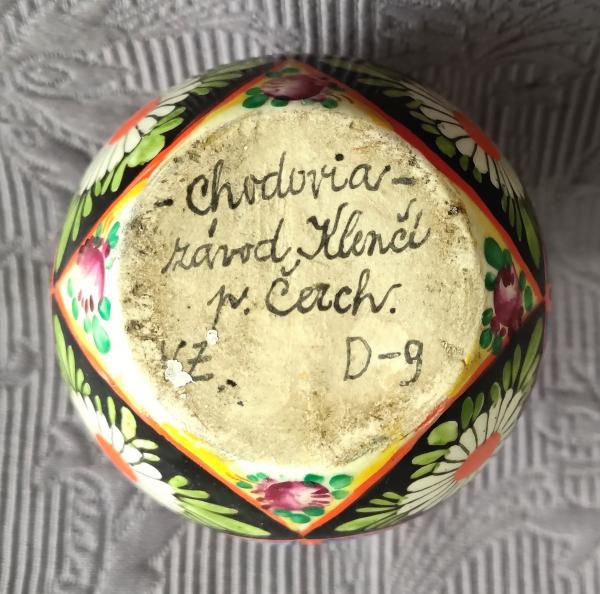 - Chodovia -
závod Klenčí
p. Čerch.
VZ. D-9